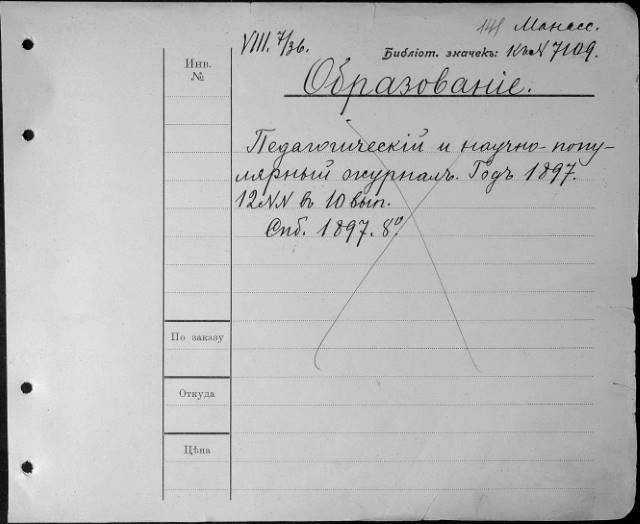 141 Монес.
VIII. 7/36.
Библіот. значекъ: КъN 7109.
Инв.
№
Образованіе.
Педагогическій и научно-попу-
лярный журналъ. Годъ 1897.
12NN въ 10 вып.
Спб. 1897. 8°.
По заказу
Откуда
Цѣна